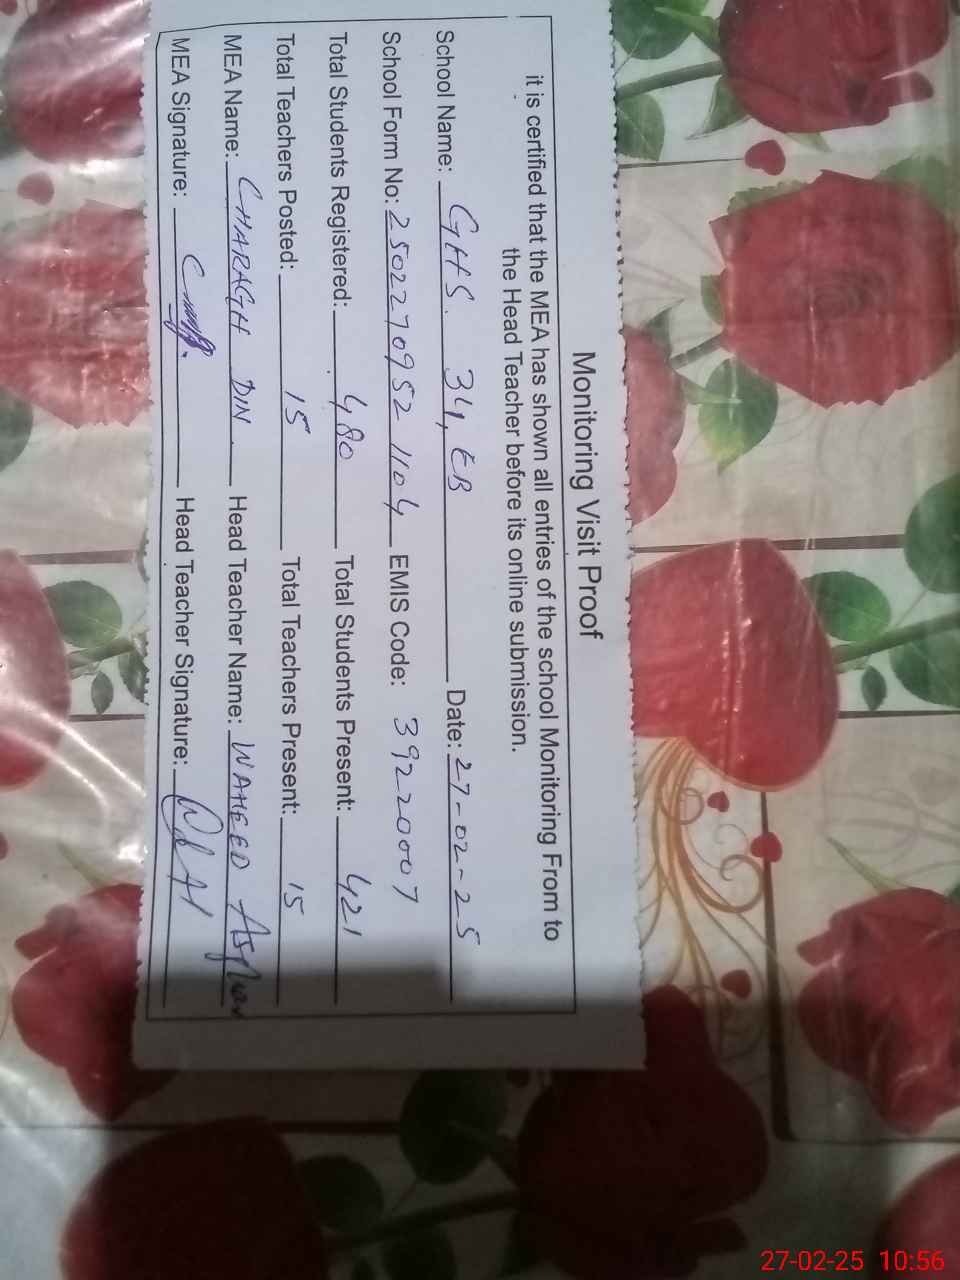 Monitoring Visit Proof
it is certified that the MEA has shown all entries of the school Monitoring From to
the Head Teacher before its online submission.
School Name: GHS. 34, EB Date: 27-02-25
School Form No: 25022709521104 EMIS Code: 39220007
Total Students Registered: 480 Total Students Present: 421
Total Teachers Posted: 15 Total Teachers Present: 15
MEA Name: CHARAGH DIN Head Teacher Name: WAHEED
MEA Signature: Head Teacher Signature:
27-02-25 10:56